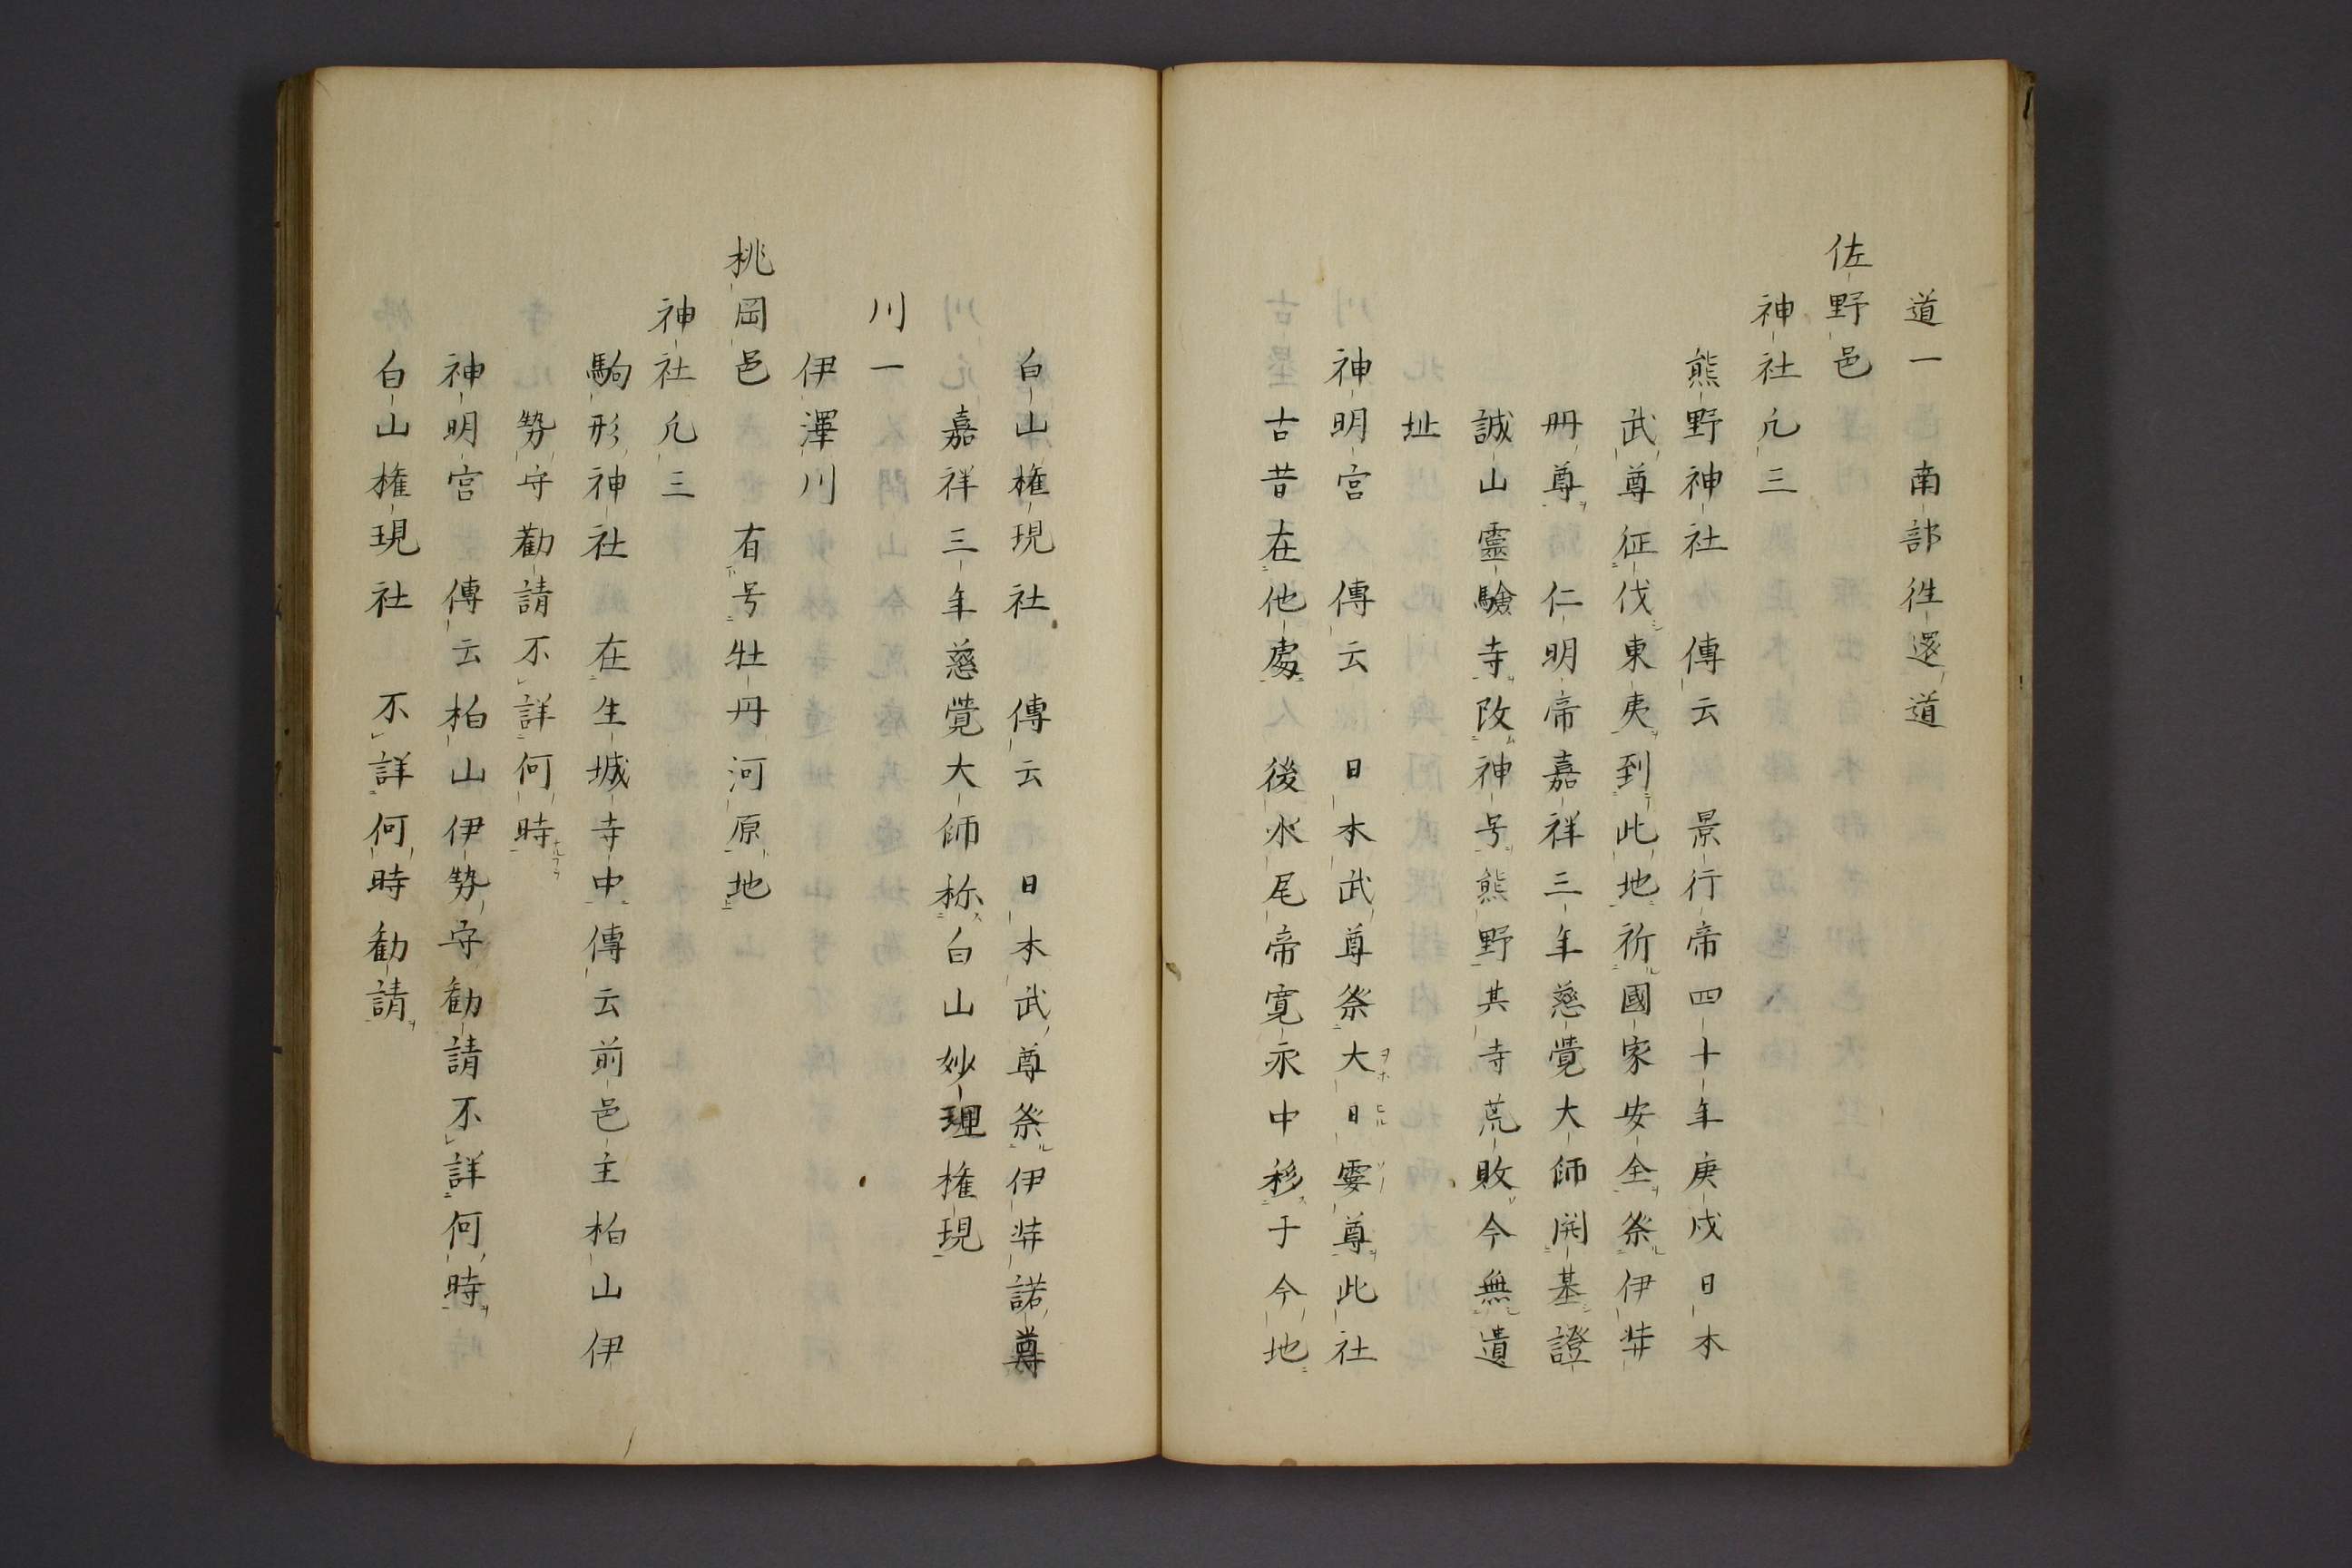 道一　南部徃還道
佐野邑
神社凢三
熊野神社　傳云　景行帝四十年庚戌日本
武尊征伐東夷到此地祈國家安全祭伊弉
冊尊　仁明帝嘉祥三年慈覺大師開基證
誠山靈驗寺改神号熊野其寺荒敗今無遺
址
神明宮　傳云　日本武尊祭大日孁尊此社
古昔在他處　後水尾帝寛永中移于今地
白山権現社　傳云　日本武尊祭伊弉諾尊
嘉祥三年慈覺大師称白山妙理権現
川一
伊澤川
桃岡邑　有号牡丹河原地
神社凢三
駒形神社　在生城寺中傳云前邑主柏山伊
勢守勸請不詳何時
神明宮　傳云柏山伊勢守勸請不詳何時
白山権現社　不詳何時勸請